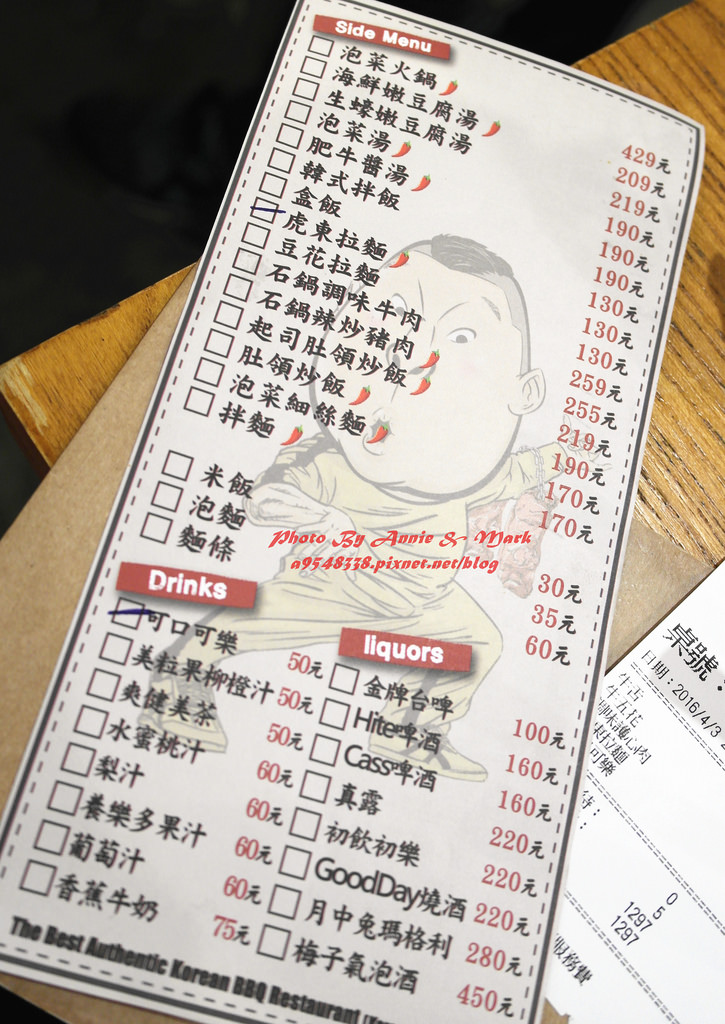 Side Menu
泡菜火鍋 429元
海鮮嫩豆腐湯 209元
生蠔嫩豆腐湯 219元
泡菜湯 190元
肥牛醬湯 190元
韓式拌飯 190元
盒飯 130元
虎東拉麵 130元
豆花拉麵 130元
石鍋調味牛肉 259元
石鍋辣炒豬肉 255元
起司肚領炒飯 219元
肚領炒飯 190元
泡菜細絲麵 170元
拌麵 170元
米飯 30元
泡麵 35元
麵條 60元
Drinks
可口可樂 50元
美粒果柳橙汁 50元
爽健美茶 50元
水蜜桃汁 60元
梨汁 60元
養樂多果汁 60元
葡萄汁 60元
香蕉牛奶 75元
liquors
金牌台啤 100元
Hite啤酒 160元
Cass啤酒 160元
真露 220元
初飲初樂 220元
GoodDay燒酒 220元
月中兔瑪格利 280元
梅子氣泡酒 450元
The Best Authentic Korean BBQ Restaurant
Photo By Annie & Mark
a9548338.pixnet.net/blog
桌號：
日期：2016/4/3
牛舌
牛五花
拉麵
可樂
待：
0
5
1297
1297
服務費